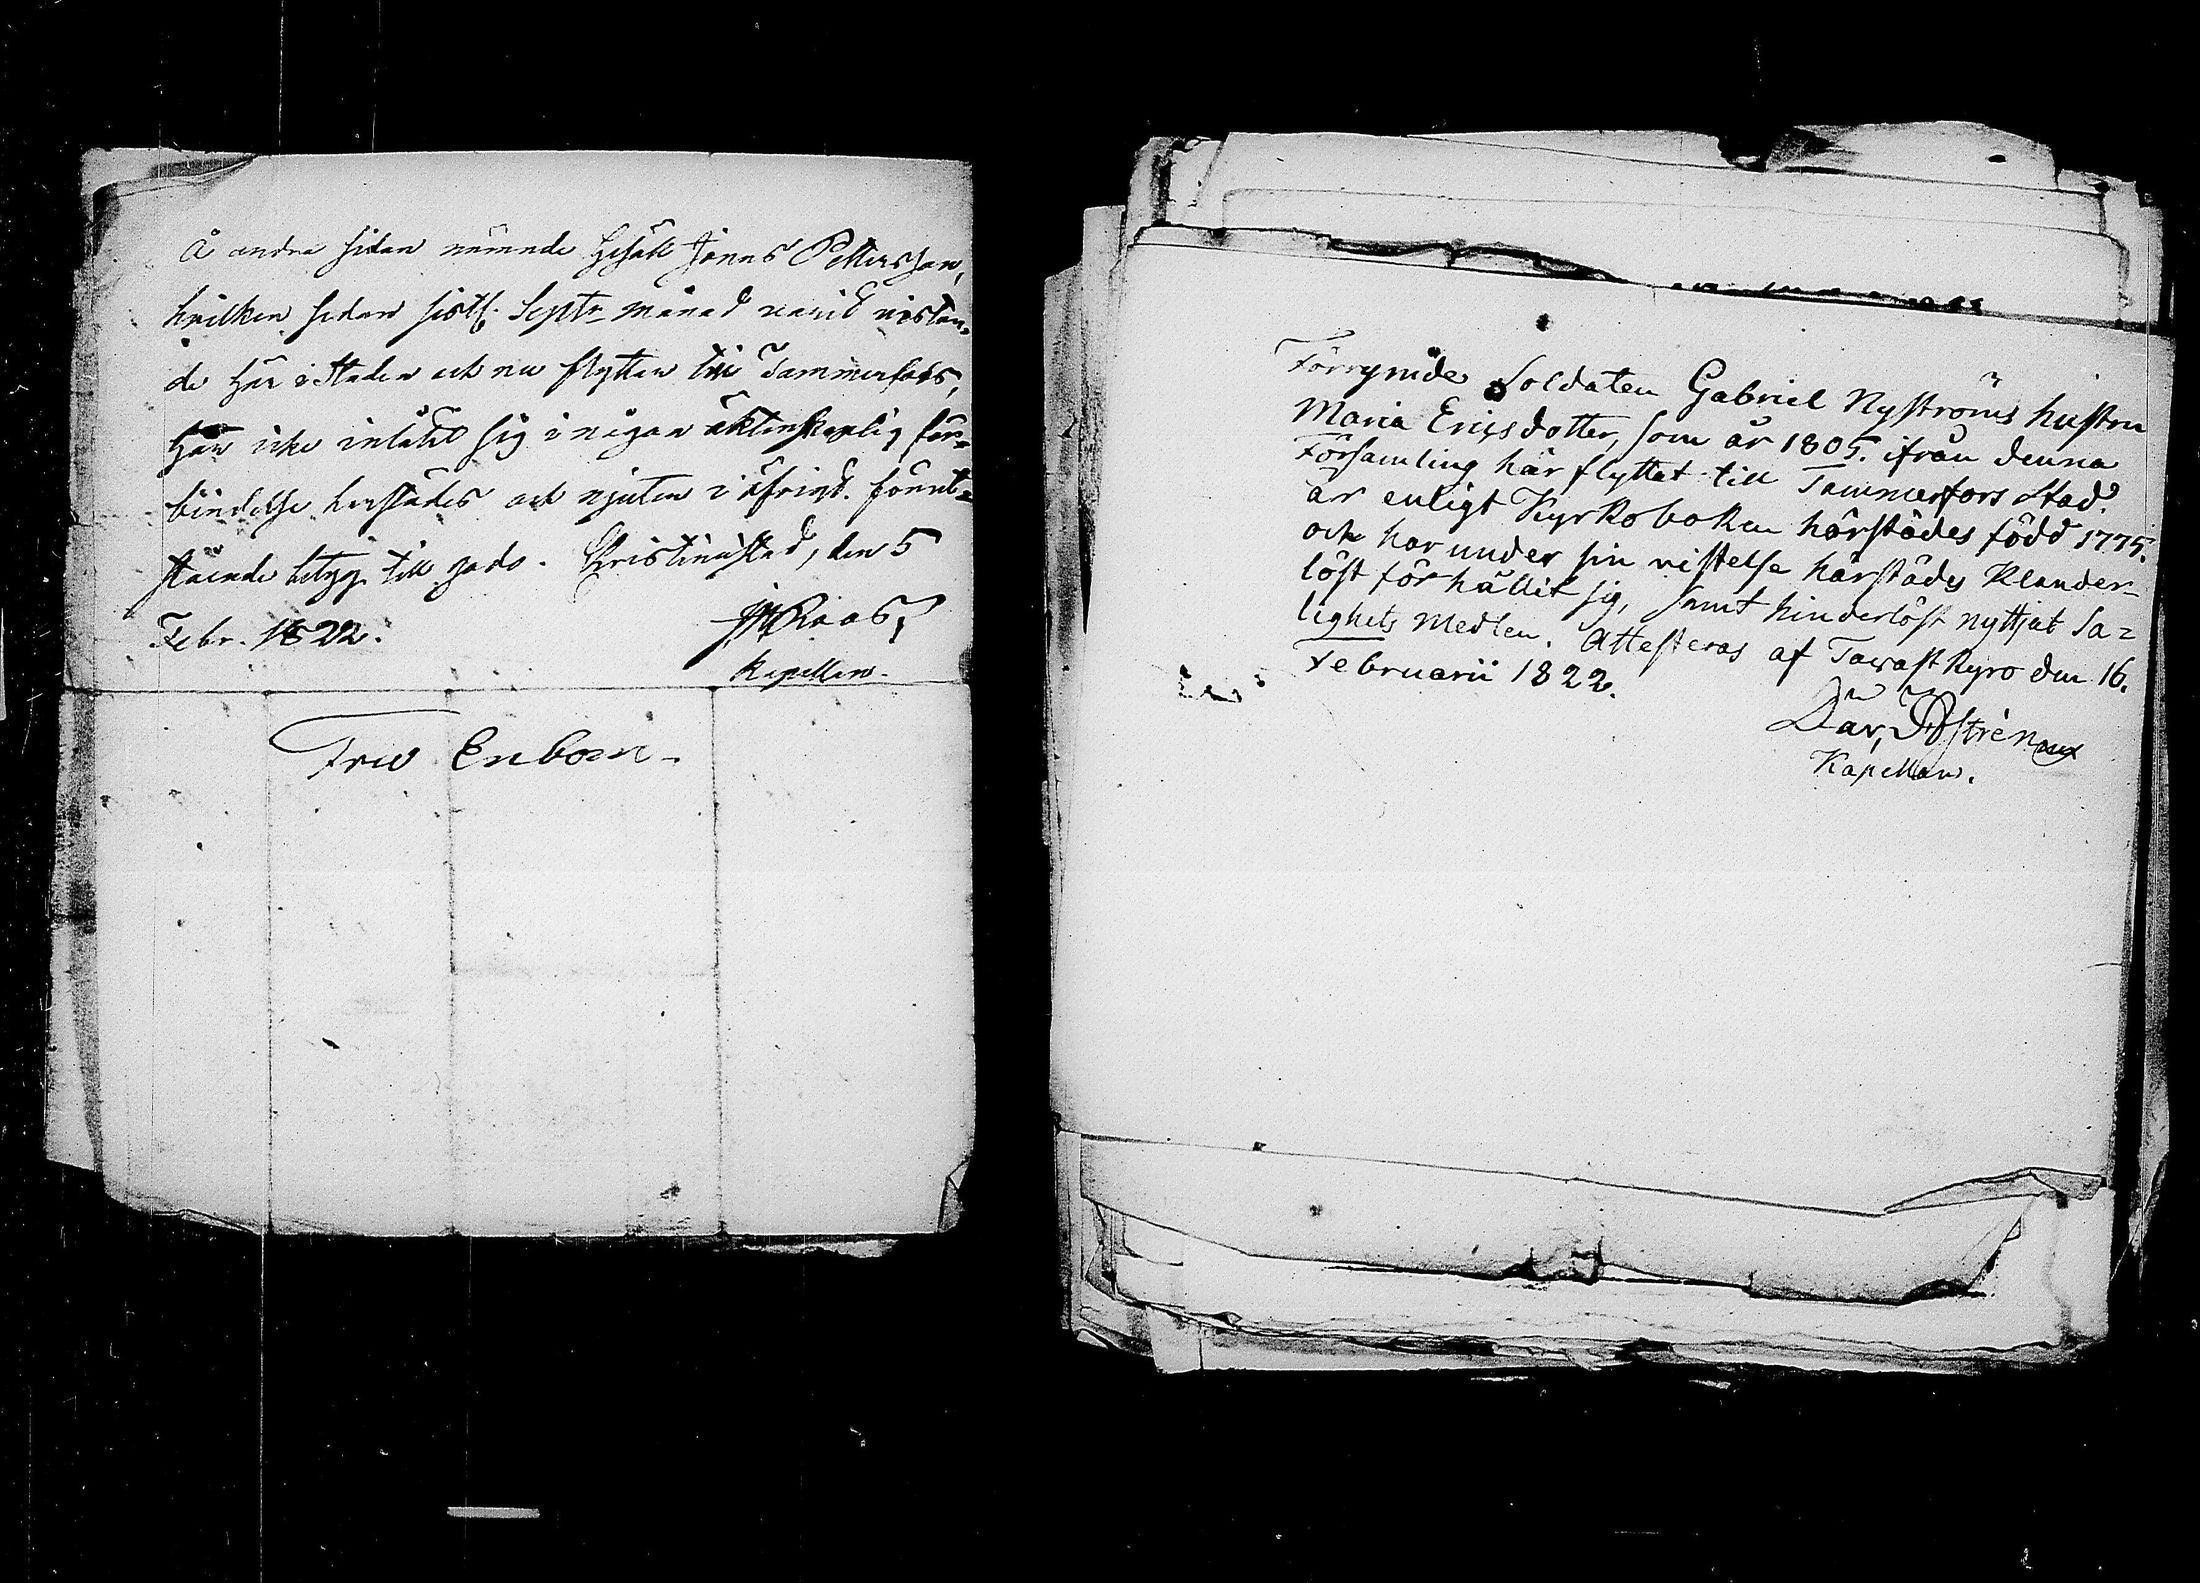 Å andra sidan nämnde Gesäll Jonas Pettersson,
hvilken sedan sistl. Septr månad varit vistan-
de här i staden och nu flyttar till Tammerfors,
har icke inlåtit sig i någon äktenskaplig för-
bindelse härstädes och njuter i öfrigt förut-
stående betyg till godo. Christinestad, den 5
Febr. 1822.
Roos,
Kapellan.
Fried Enbom
Förrymde Soldaten Gabriel Nyströms hustru
Maria Ericsdotter, som år 1805. ifrån denna
Församling här flyttat till Tammerfors Stad.
är enligt Kyrkoboken härstädes född 1775.
och har under sin vistelse härstädes klander-
löst förhållit sig, samt hinderlöst nyttjat Sa-
lighets medlen. Attesteras af Tavastkyro den 16.
Februarii 1822.
Dav,
Kapellan.